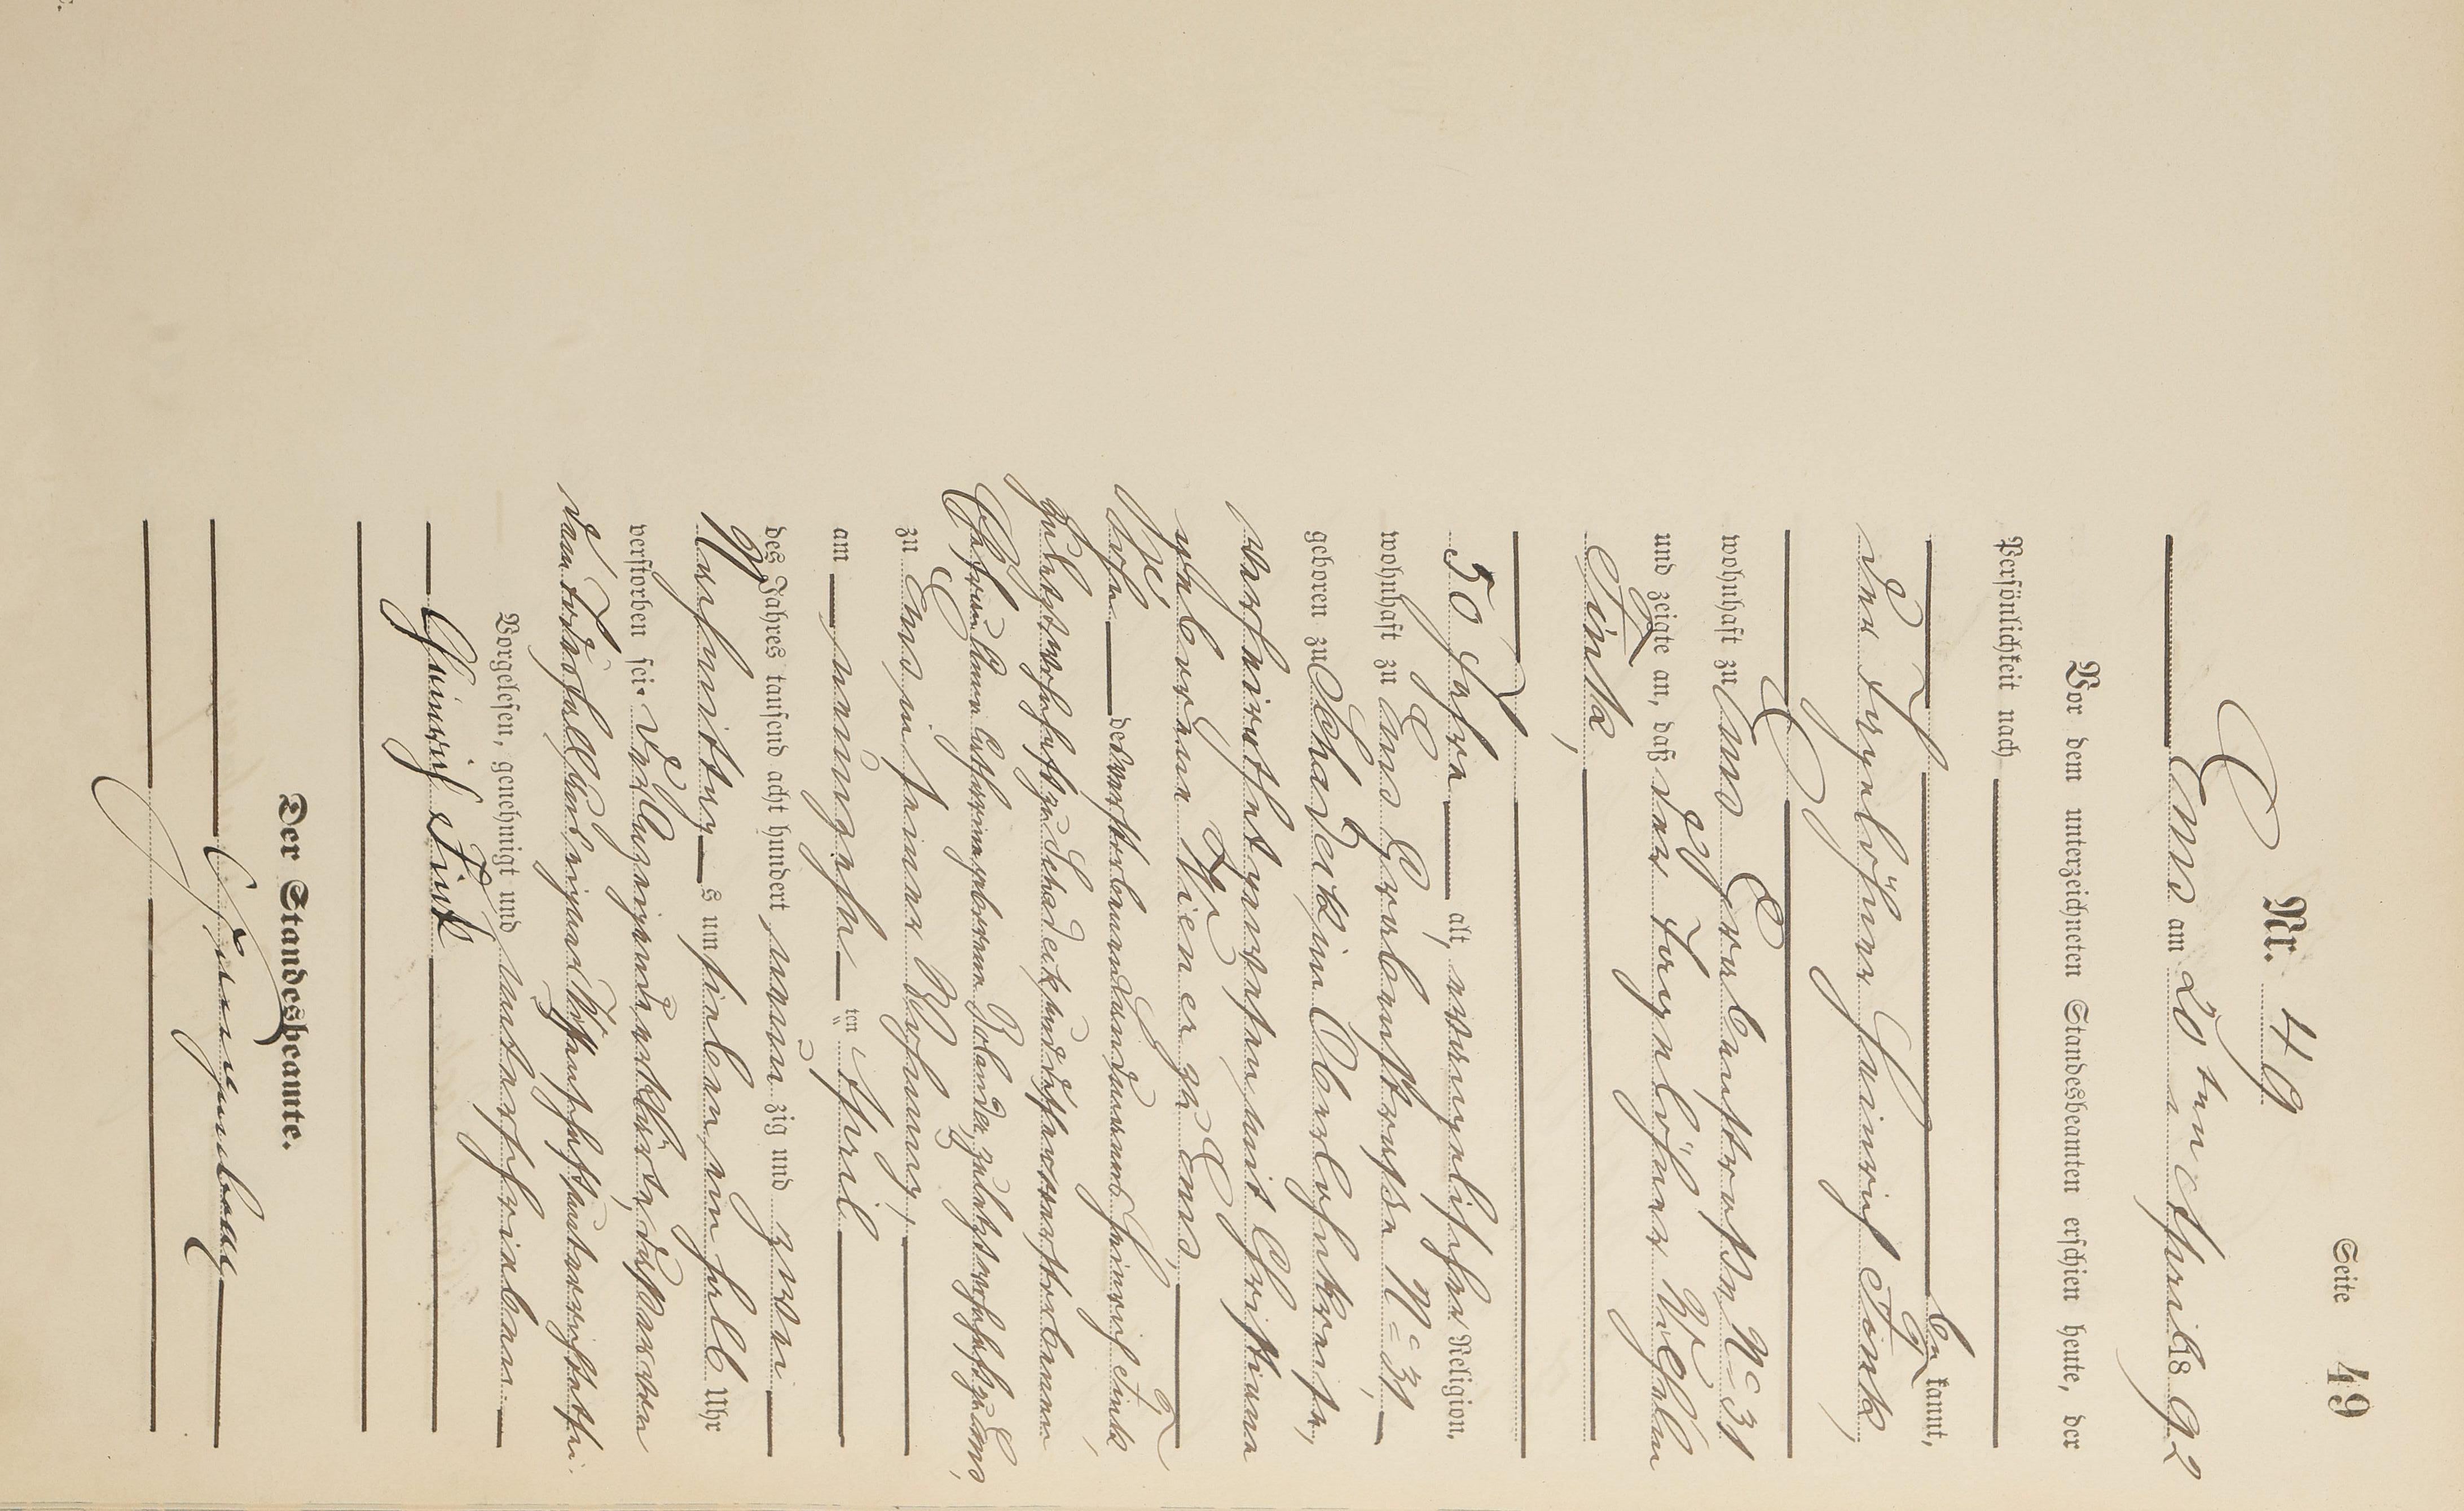 Seite 49
Nr. 49
Ems am 20ten April 1892
Vor dem unterzeichneten Standesbeamten erschien heute, der
Persönlichkeit nach
bekannt,
der Tagelöhner Heinrich Fink,
wohnhaft zu Ems Grabenstraße No 31
und zeigte an, daß der Tagelöhner Wilhelm
Fink,
50 Jahre alt, evangelischer Religion,
wohnhaft zu Ems Grabenstraße No 31,
geboren zu Schadeck im Oberlahnkreise,
verheirathet gewesen mit Christiana
geborene Wiener zu Ems,
Sohn des verstorbenen Heinrich Fink,
zuletzt wohnhaft zu Schadeck und dessen verstorbenen
Ehefrau Anna Catharina geborene zuletzt wohnhaft zu Ems,
zu Ems in seiner Wohnung,
am neunzehnten April
des Jahres tausend acht hundert neunzig und zwei
Nachmittags um sieben ein halb Uhr
verstorben sei. Der Anzeigende erklärte, daß er von
dem Todesfall aus eigener Wissenschaft unterrichtet sei.
Vorgelesen, genehmigt und unterschrieben.
Heinrich Fink
Der Standesbeamte.